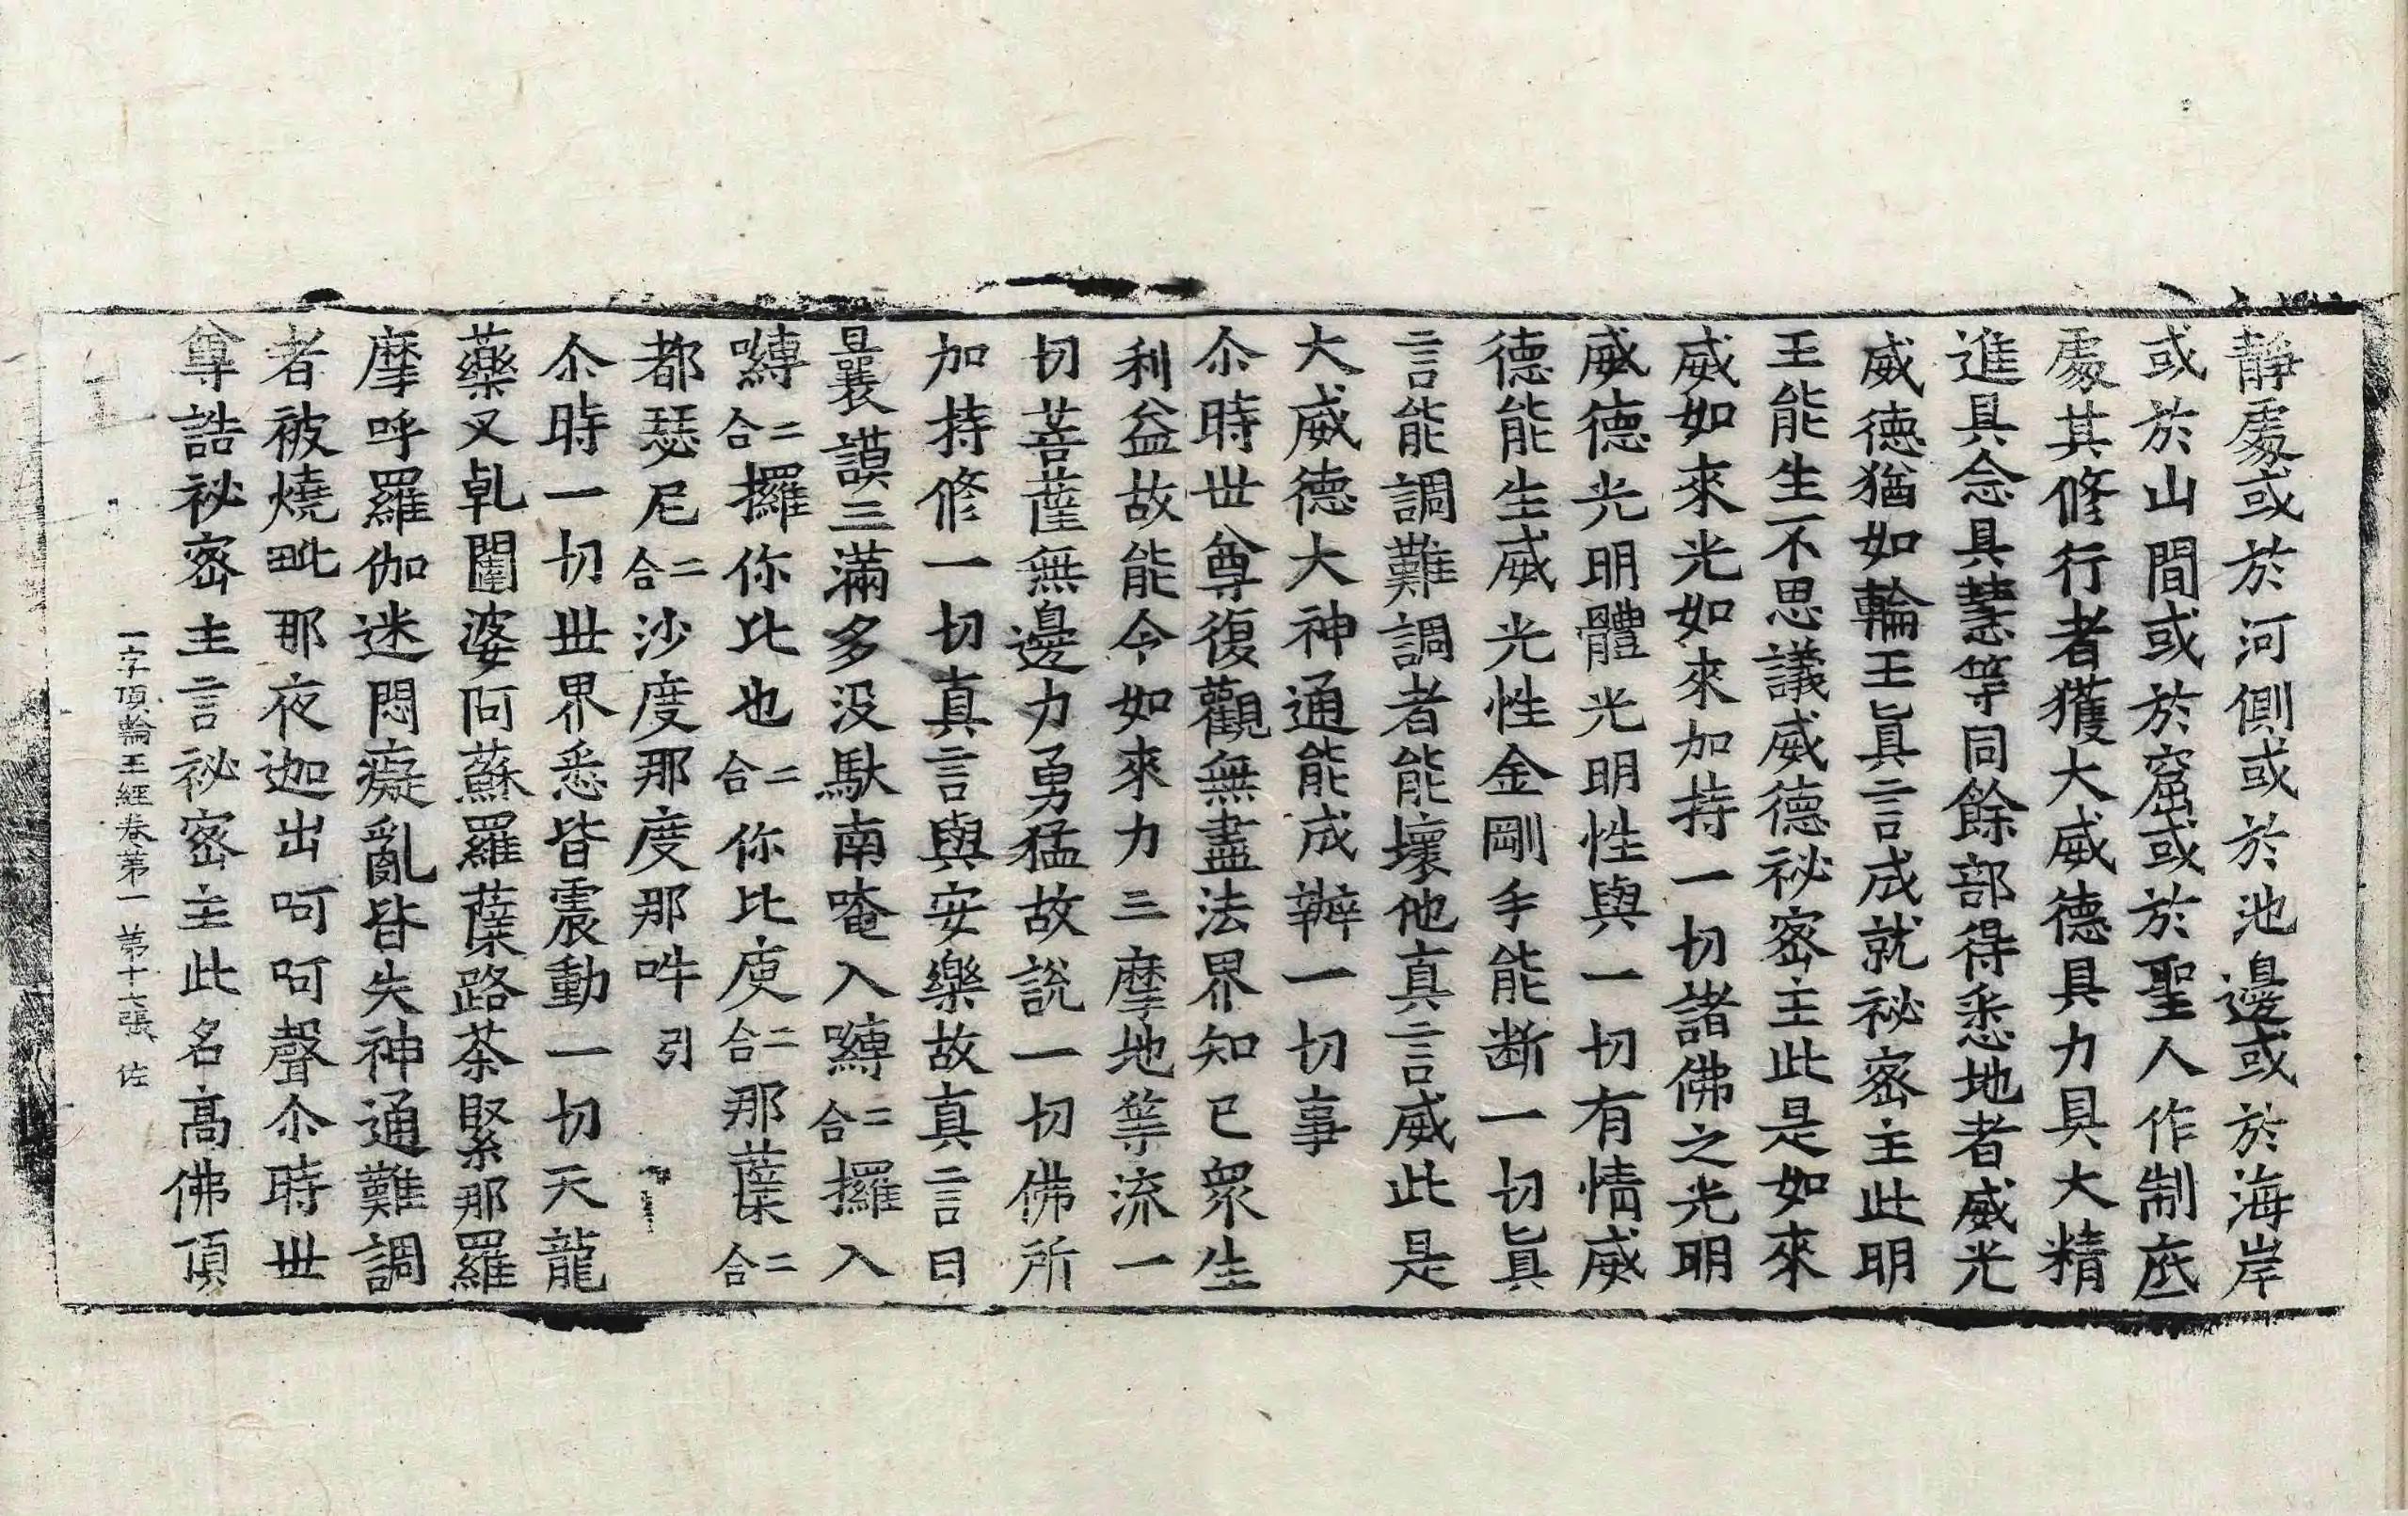 靜處或於河側或於池邊或於海岸
或於山間或於窟或於聖人作制底
處其修行者獲大威德具力具大精
進具念具慧等同餘部得悉地者威光
威德猶如輪王眞言成就祕密主此明
王能生不思議威德祕密主此是如來
威如來光如來加持一切諸佛之光明
威德光明體光明性與一切有情威
德能生威光性金剛手能断一切眞
言能調難調者能壞他真言威此是
大威德大神通能成辦一切事
尒時世尊復觀無盡法界知已衆生
利益故能令如來力三摩地等流一
切菩薩無邊力勇猛故說一切佛所
加持修一切真言與安樂故真言曰
曩謨三滿多没馱南唵入嚩二合攞入
嚩二合攞你比也二合你比庾二合那蘖二合
都瑟尼二合沙度那度那吽引
尒時一切世界悉皆震動一切天龍
藥叉乹闥婆阿蘇羅蘖路荼緊那羅
摩呼羅伽迷悶癡亂皆失神通難調
者被燒毗那夜迦出呵呵聲尒時世
尊誥祕密主言祕密主此名高佛頂
一字頂輪王經卷第一 第十七張 佐